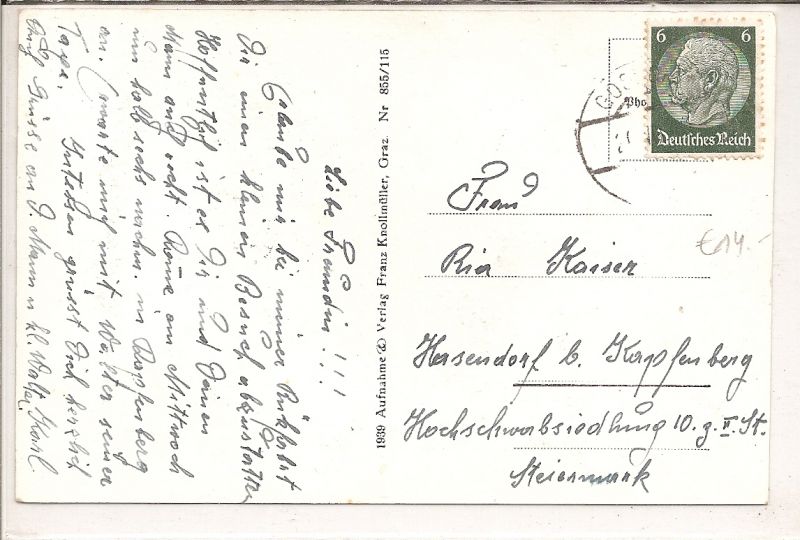 Liebe Freundin!!!
Erlaube mir bei meiner Rückfahrt
Dir einen kleinen Besuch abzustatten
Hoffentlich ist es Dir und Deinem
Mann auch recht. Komme am Mittwoch
um halb sechs nachm. in Kapfenberg
an. Erwarte mich mit Walter seiner
Inzwischen grüsst Dich herzlich
Grüsse an D. Mann u kl. Walter Karl
1939 Aufnahme u Verlag Franz Knollmüller, Graz. Nr 855/115
6 6
Deutsches Reich
Pho
Frau
Ria Kaiser
Hasendorf b. Kapfenberg
Hochschwabsiedlung 10. z. II. St.
Steiermark
€ 14.-